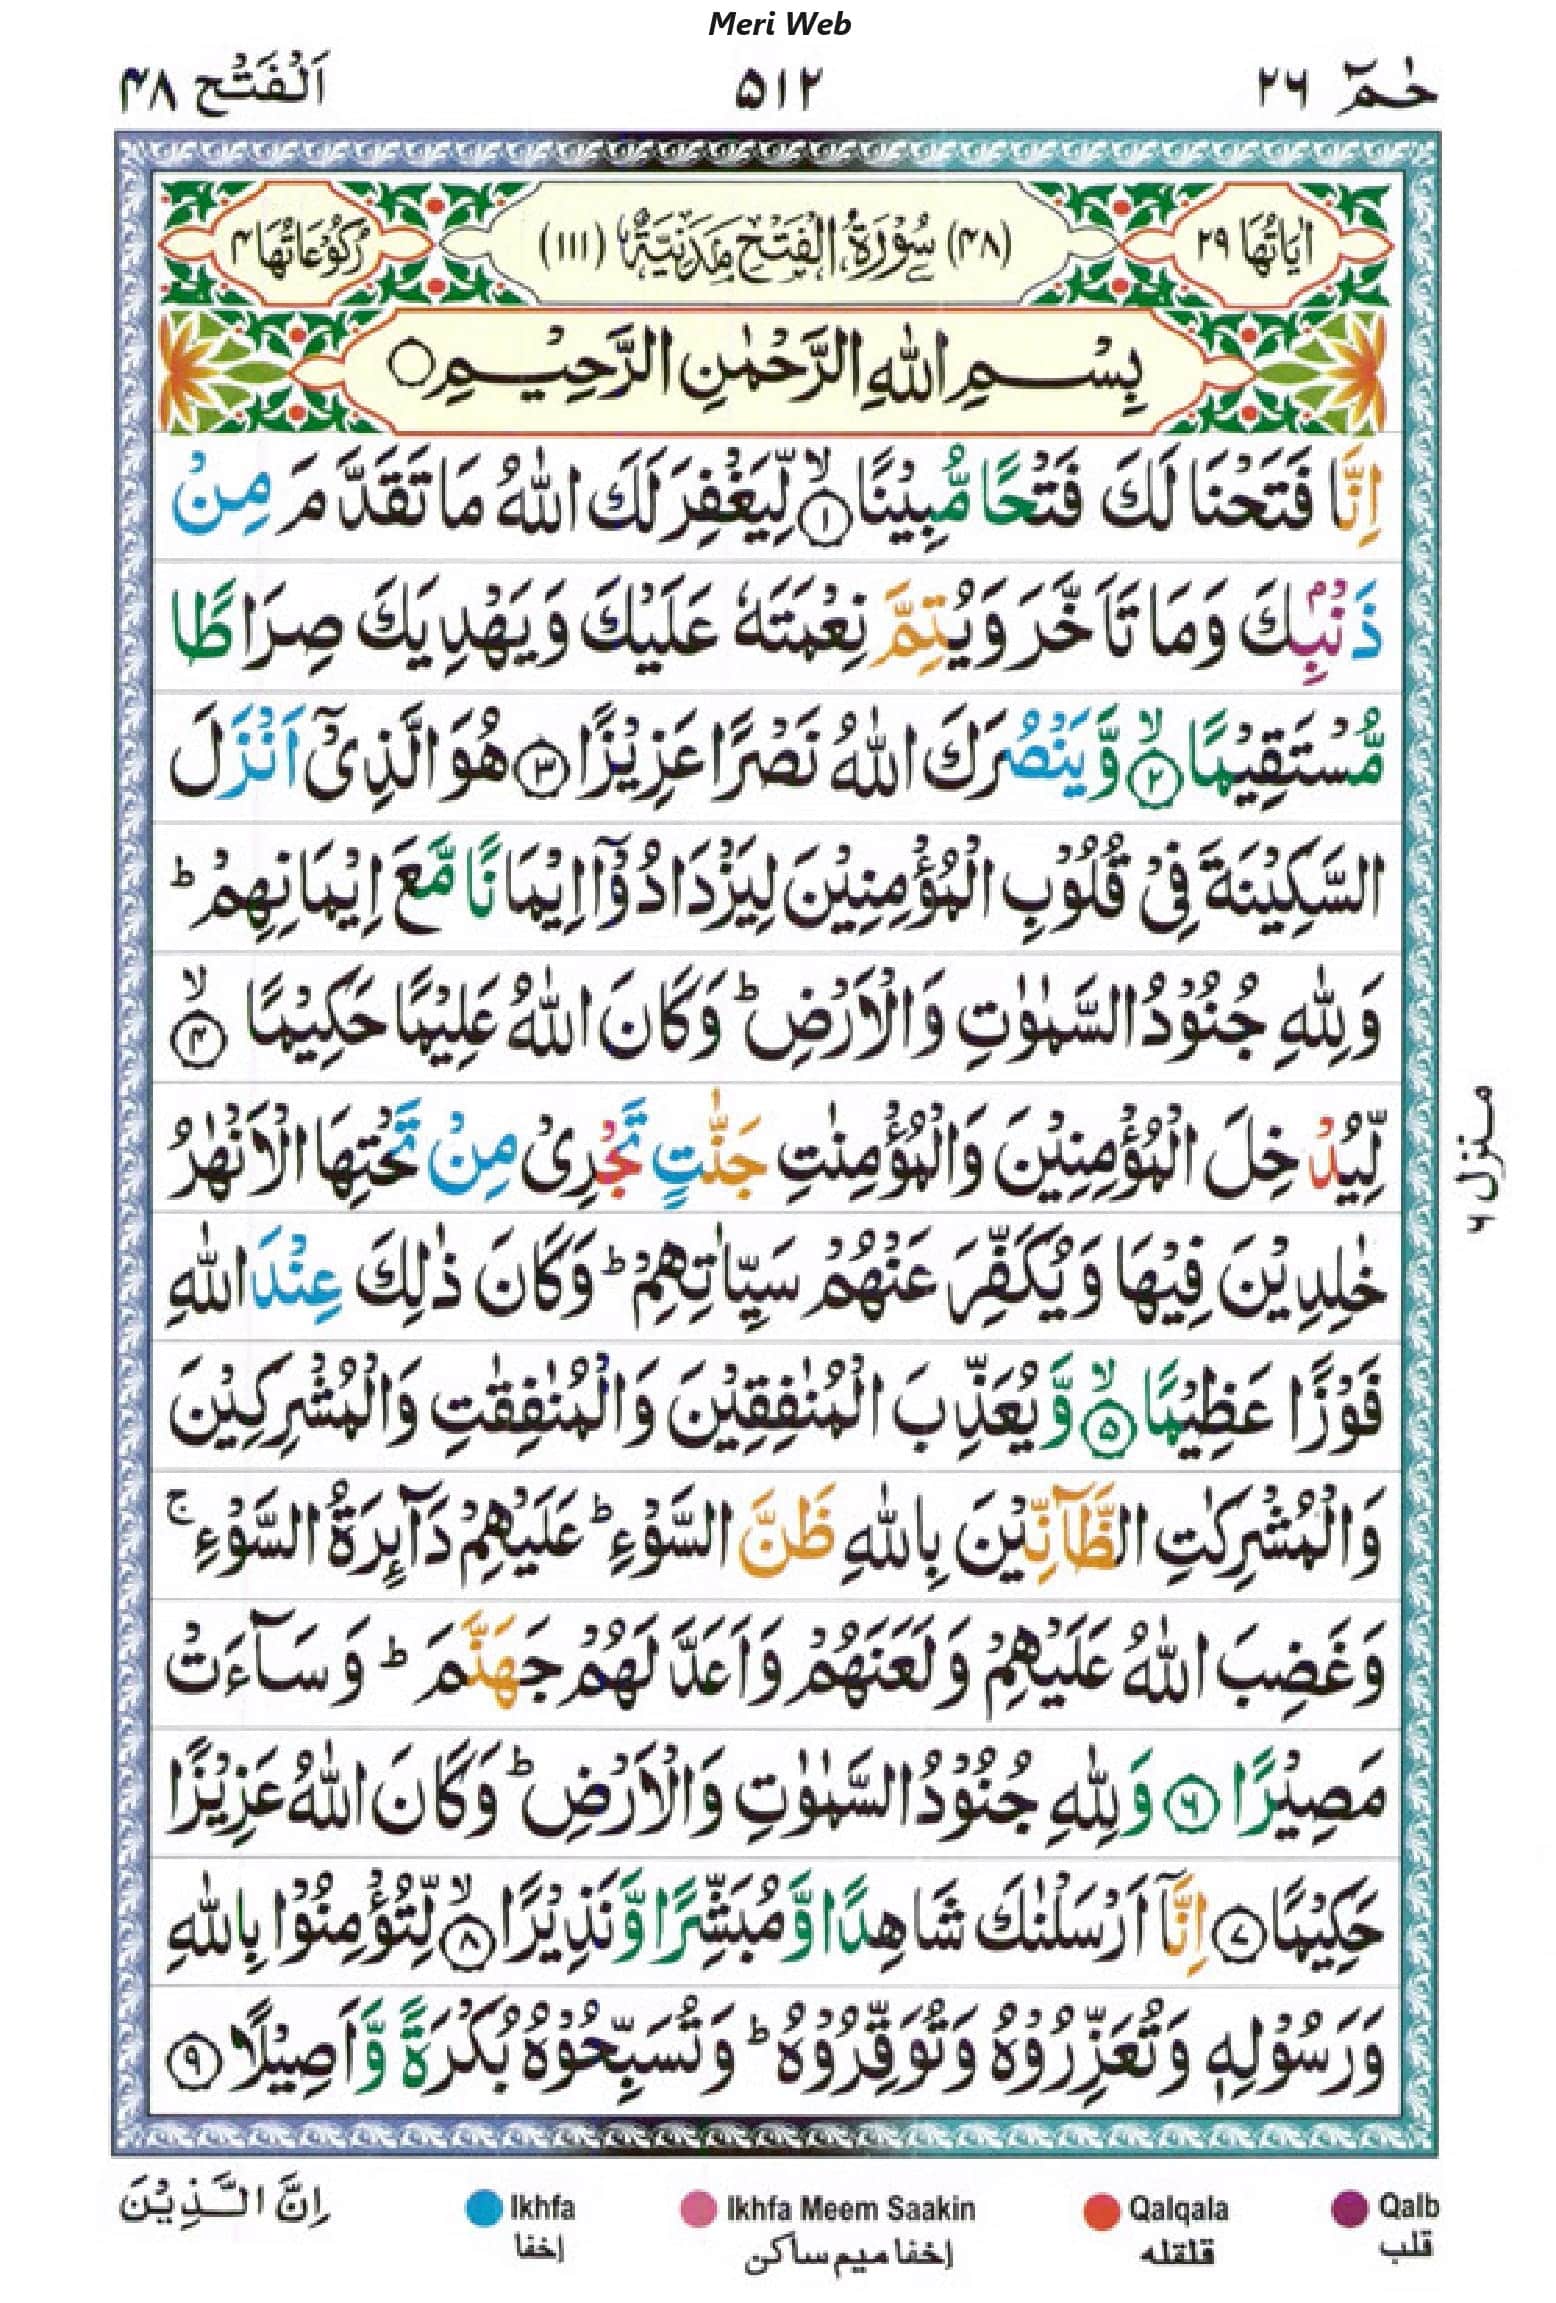 Meri Web
حٰمٓ ۲۶ ۵۱۲ اَلْفَتْح ۴۸
اٰيَاتُهَا ۲۹ (۴۸) سُوْرَةُ الْفَتْحِ مَدَنِيَّةٌ (۱۱۱) رُكُوْعَاتُهَا ۴
بِسْمِ اللّٰهِ الرَّحْمٰنِ الرَّحِيْمِ ○
اِنَّا فَتَحْنَا لَكَ فَتْحًا مُّبِيْنًا ۙ﴿۱﴾ لِّيَغْفِرَ لَكَ اللّٰهُ مَا تَقَدَّمَ مِنْ
ذَنْۢبِكَ وَمَا تَاَخَّرَ وَيُتِمَّ نِعْمَتَهٗ عَلَيْكَ وَيَهْدِيَكَ صِرَاطًا
مُّسْتَقِيْمًا ۙ﴿۲﴾ وَّيَنْصُرَكَ اللّٰهُ نَصْرًا عَزِيْزًا ﴿۳﴾ هُوَ الَّذِيْۤ اَنْزَلَ
السَّكِيْنَةَ فِيْ قُلُوْبِ الْمُؤْمِنِيْنَ لِيَزْدَادُوْۤا اِيْمَانًا مَّعَ اِيْمَانِهِمْ ؕ
وَلِلّٰهِ جُنُوْدُ السَّمٰوٰتِ وَالْاَرْضِ ؕ وَكَانَ اللّٰهُ عَلِيْمًا حَكِيْمًا ۙ﴿۴﴾
لِّيُدْخِلَ الْمُؤْمِنِيْنَ وَالْمُؤْمِنٰتِ جَنّٰتٍ تَجْرِيْ مِنْ تَحْتِهَا الْاَنْهٰرُ
خٰلِدِيْنَ فِيْهَا وَيُكَفِّرَ عَنْهُمْ سَيِّاٰتِهِمْ ؕ وَكَانَ ذٰلِكَ عِنْدَ اللّٰهِ
فَوْزًا عَظِيْمًا ۙ﴿۵﴾ وَّيُعَذِّبَ الْمُنٰفِقِيْنَ وَالْمُنٰفِقٰتِ وَالْمُشْرِكِيْنَ
وَالْمُشْرِكٰتِ الظَّآنِّيْنَ بِاللّٰهِ ظَنَّ السَّوْءِ ؕ عَلَيْهِمْ دَآىِٕرَةُ السَّوْءِ ۚ
وَغَضِبَ اللّٰهُ عَلَيْهِمْ وَلَعَنَهُمْ وَاَعَدَّ لَهُمْ جَهَنَّمَ ؕ وَسَآءَتْ
مَصِيْرًا ﴿۶﴾ وَلِلّٰهِ جُنُوْدُ السَّمٰوٰتِ وَالْاَرْضِ ؕ وَكَانَ اللّٰهُ عَزِيْزًا
حَكِيْمًا ﴿۷﴾ اِنَّاۤ اَرْسَلْنٰكَ شَاهِدًا وَّمُبَشِّرًا وَّنَذِيْرًا ۙ﴿۸﴾ لِّتُؤْمِنُوْا بِاللّٰهِ
وَرَسُوْلِهٖ وَتُعَزِّرُوْهُ وَتُوَقِّرُوْهُ ؕ وَتُسَبِّحُوْهُ بُكْرَةً وَّاَصِيْلًا ﴿۹﴾
منزل ۶
اِنَّ الَّذِيْنَ
Ikhfa Ikhfa Meem Saakin Qalqala Qalb
اخفا اخفا میم ساکن قلقلہ قلب